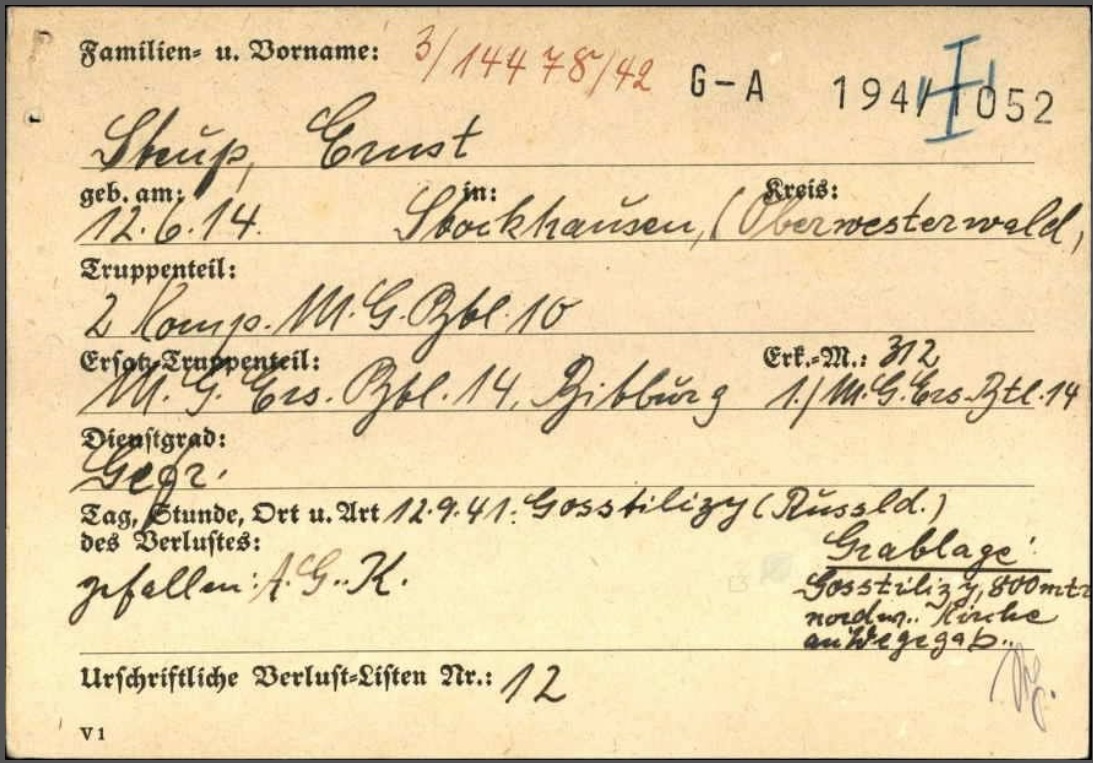 Familien- u. Vorname: 3/14478/42 G-A 1941 1052
Steup, Ernst
geb. am: in: Kreis:
12.6.14. Stockhausen, (Oberwesterwald,
Truppenteil:
2 Komp. M. G. Btl. 10
Ersatz-Truppenteil: Erk.-M.: 312
M. G. Ers. Btl. 14, Bitburg 1./M.G.Ers.Btl.14
Dienstgrad:
Gefr.
Tag, Stunde, Ort u. Art 12.9.41. Gosstilizy (Russld.)
des Verlustes:
gefallen: A.G.. K.
Grablage:
Gosstilizy, 800 mtr
nordw.. Kirche
an Wegegab..
Urschriftliche Verlust-Listen Nr.: 12
V 1